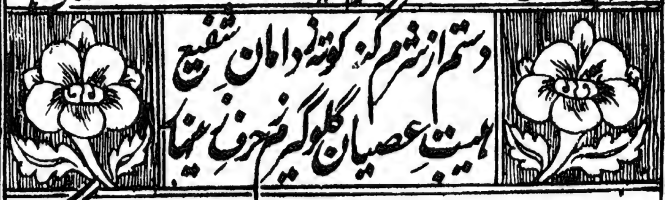 دستم از شرم گنہ کوتہ ز دامانِ شفیع
ہیبتِ عصیان گلوگیرم نہ حرفے